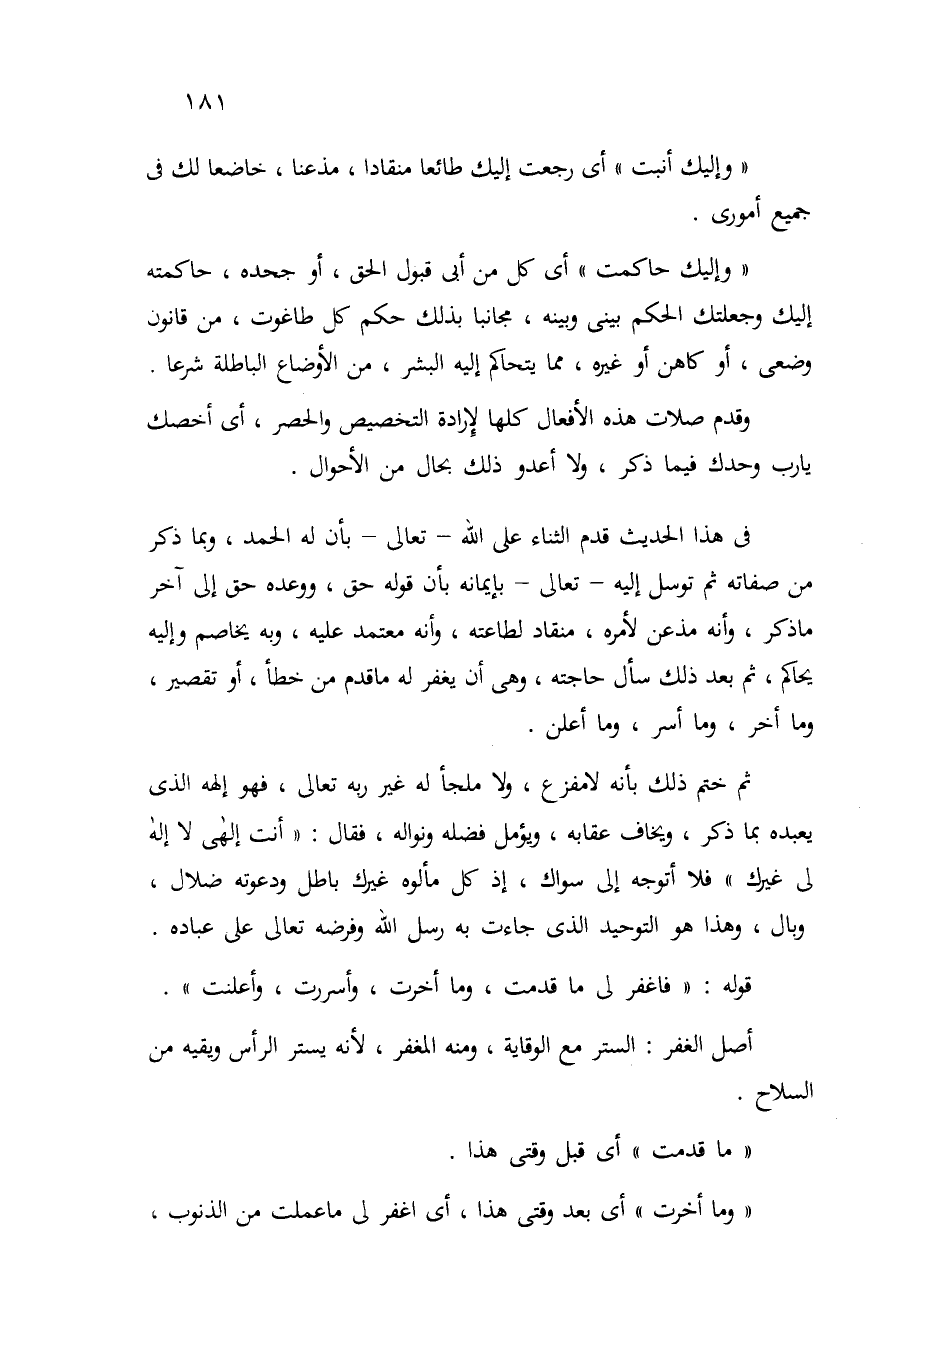 ١٨١
« وإليك أنبت » أى رجعت إليك طائعا منقادا ، مذعنا ، خاضعا لك فى
جميع أمورى .
« وإليك حاكمت » أى كل من أبى قبول الحق ، أو جحده ، حاكمته
إليك وجعلتك الحكم بينى وبينه ، مجانبا بذلك حكم كل طاغوت ، من قانون
وضعى ، أو كاهن أو غيره ، مما يتحاكم إليه البشر ، من الأوضاع الباطلة شرعا .
وقدم صلات هذه الأفعال كلها لإرادة التخصيص والحصر ، أى أخصك
يارب وحدك فيما ذكر ، ولا أعدو ذلك بحال من الأحوال .
فى هذا الحديث قدم الثناء على الله – تعالى – بأن له الحمد ، وبما ذكر
من صفاته ثم توسل إليه – تعالى – بإيمانه بأن قوله حق ، ووعده حق إلى آخر
ماذكر ، وأنه مذعن لأمره ، منقاد لطاعته ، وأنه معتمد عليه ، وبه يخاصم وإليه
يحاكم ، ثم بعد ذلك سأل حاجته ، وهى أن يغفر له ماقدم من خطأ ، أو تقصير ،
وما أخر ، وما أسر ، وما أعلن .
ثم ختم ذلك بأنه لامفزع ، ولا ملجأ له غير ربه تعالى ، فهو إلهه الذى
يعبده بما ذكر ، ويخاف عقابه ، ويؤمل فضله ونواله ، فقال : « أنت إلهٰى لا إلهٰ
لى غيرك » فلا أتوجه إلى سواك ، إذ كل مألوه غيرك باطل ودعوته ضلال ،
وبال ، وهذا هو التوحيد الذى جاءت به رسل الله وفرضه تعالى على عباده .
قوله : « فاغفر لى ما قدمت ، وما أخرت ، وأسررت ، وأعلنت » .
أصل الغفر : الستر مع الوقاية ، ومنه المغفر ، لأنه يستر الرأس ويقيه من
السلاح .
« ما قدمت » أى قبل وقتى هذا .
« وما أخرت » أى بعد وقتى هذا ، أى اغفر لى ماعملت من الذنوب ،